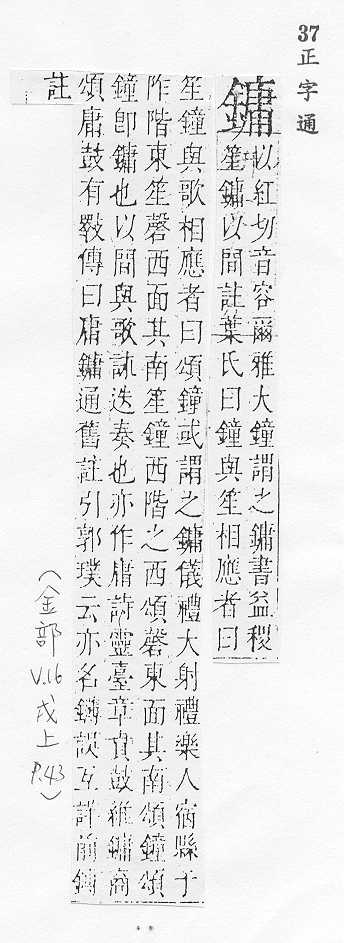 37正字通
鏞
以紅切音容爾雅大鐘謂之鏞書益稷
笙鏞以間註葉氏曰鐘與笙相應者曰
笙鐘與歌相應者曰頌鐘或謂之鏞儀禮大射禮樂人宿縣于
阼階東笙磬西面其南笙鐘西階之西頌磬東面其南頌鐘頌
鐘卽鏞也以間與歌詠迭奏也亦作庸詩靈臺章賁鼓維鏞商
頌庸鼓有斁傳曰庸鏞通舊註引郭璞云亦名鎛誤互詳前鎛
註
(金部 V.16 戌上 P.43)